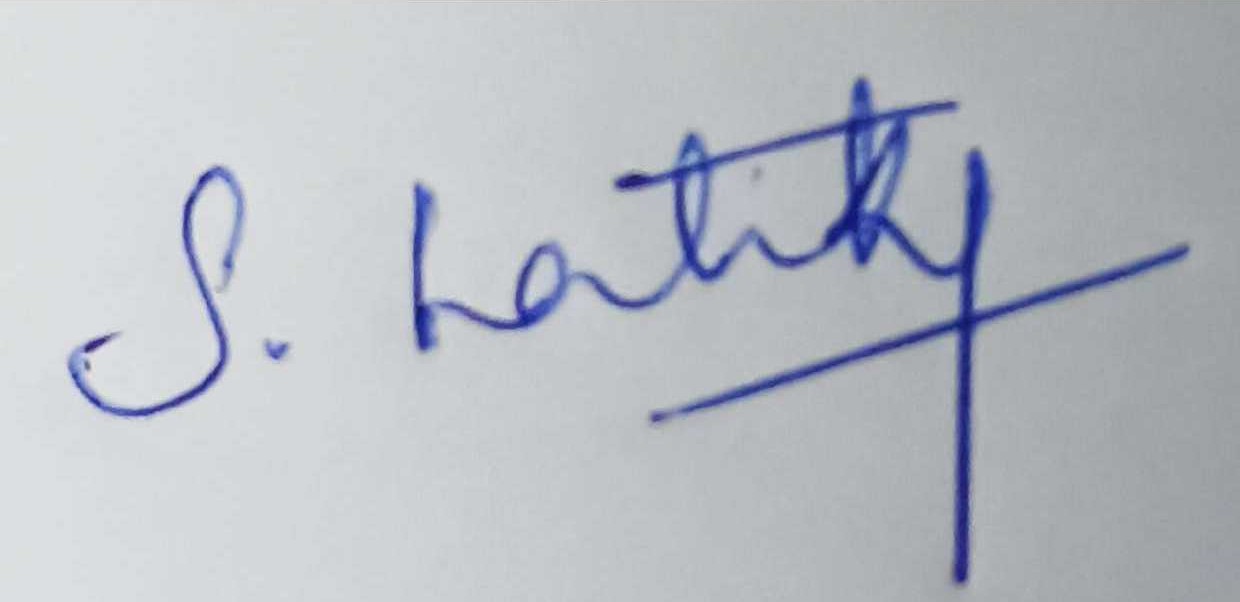 S. Latika